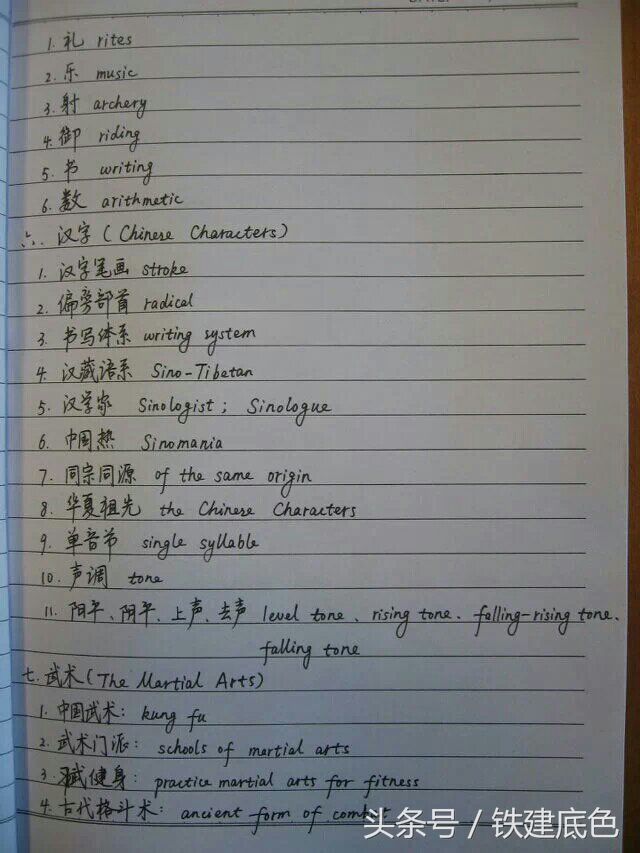 1. 礼 rites
2. 乐 music
3. 射 archery
4. 御 riding
5. 书 writing
6. 数 arithmetic
六. 汉字 (Chinese Characters)
1. 汉字笔画 stroke
2. 偏旁部首 radical
3. 书写体系 writing system
4. 汉藏语系 Sino-Tibetan
5. 汉学家 Sinologist; Sinologue
6. 中国热 Sinomania
7. 同宗同源 of the same origin
8. 华夏祖先 the Chinese Characters
9. 单音节 single syllable
10. 声调 tone
11. 阳平、阴平、上声、去声 level tone、rising tone、falling-rising tone、
falling tone
七. 武术 (The Martial Arts)
1. 中国武术: kung fu
2. 武术门派: schools of martial arts
3. 习武健身: practice martial arts for fitness
4. 古代格斗术: ancient form of combat
头条号 / 铁建底色